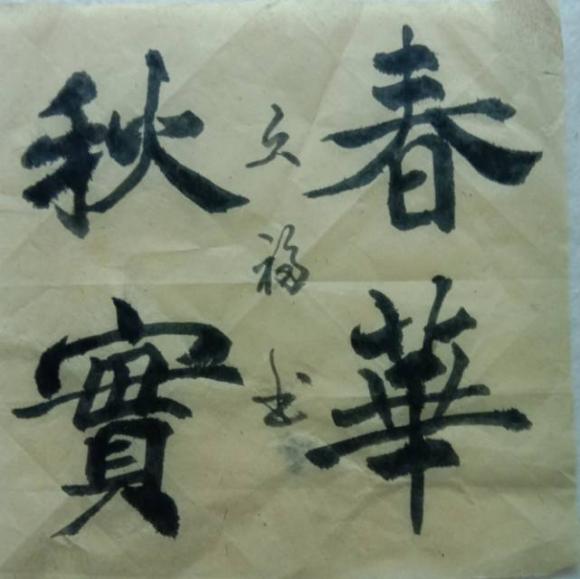 春華
秋實
文福书